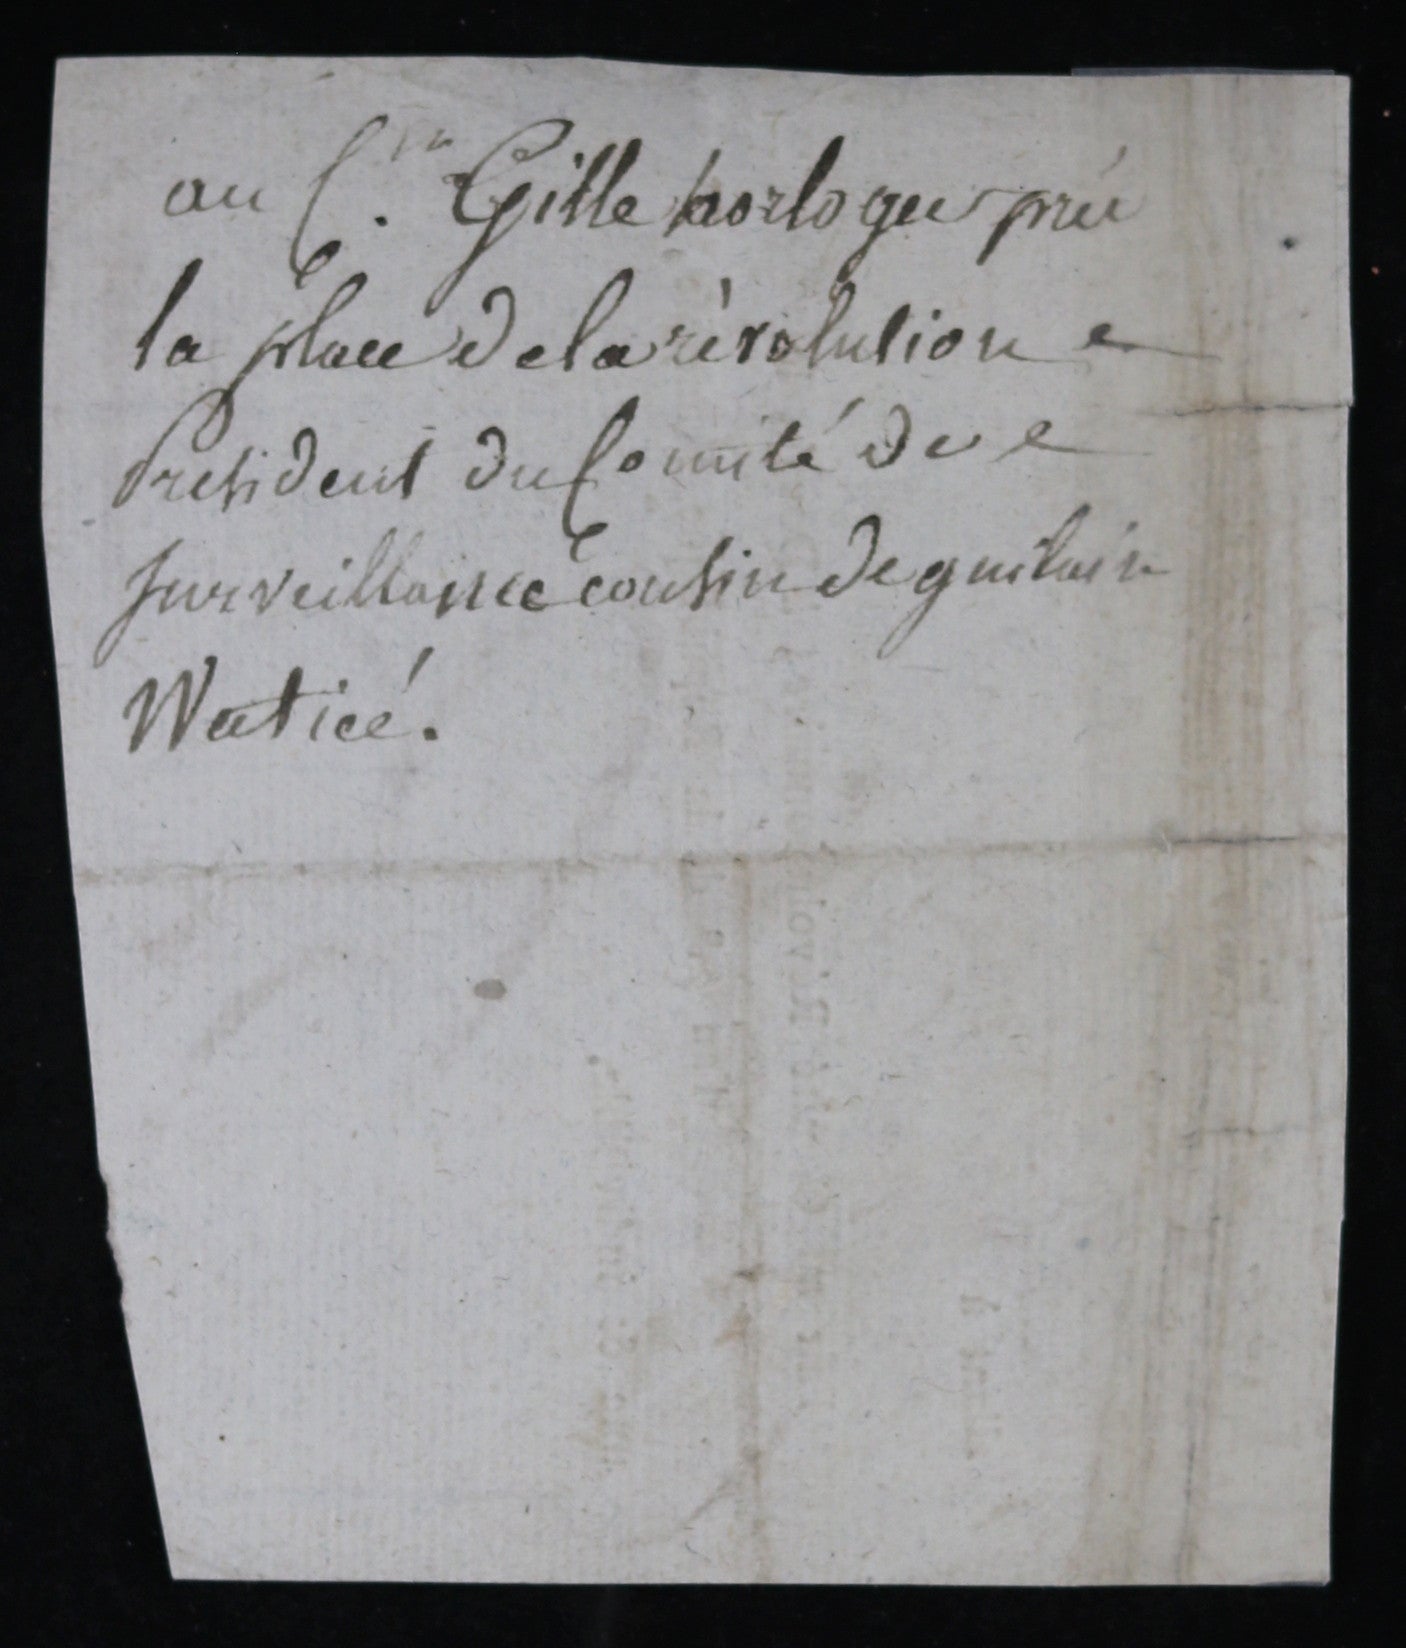 au C.en Gille horloger près
la place de la révolution
Président du Comité de
surveillance cousin de guilain
Waticé.